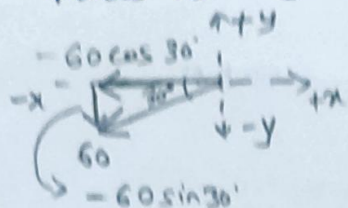 +y
-60 cos 30°
-x
30°
+x
-y
60
-60 sin 30°